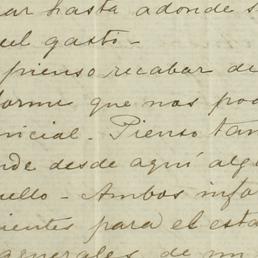 ar hasta adonde s
uel gasto -
pienso recabar de
forme que nos pod
nicial. Pienso tam
nde desde aquí algu
uello - Ambos info
ientes para el esta
generales de un